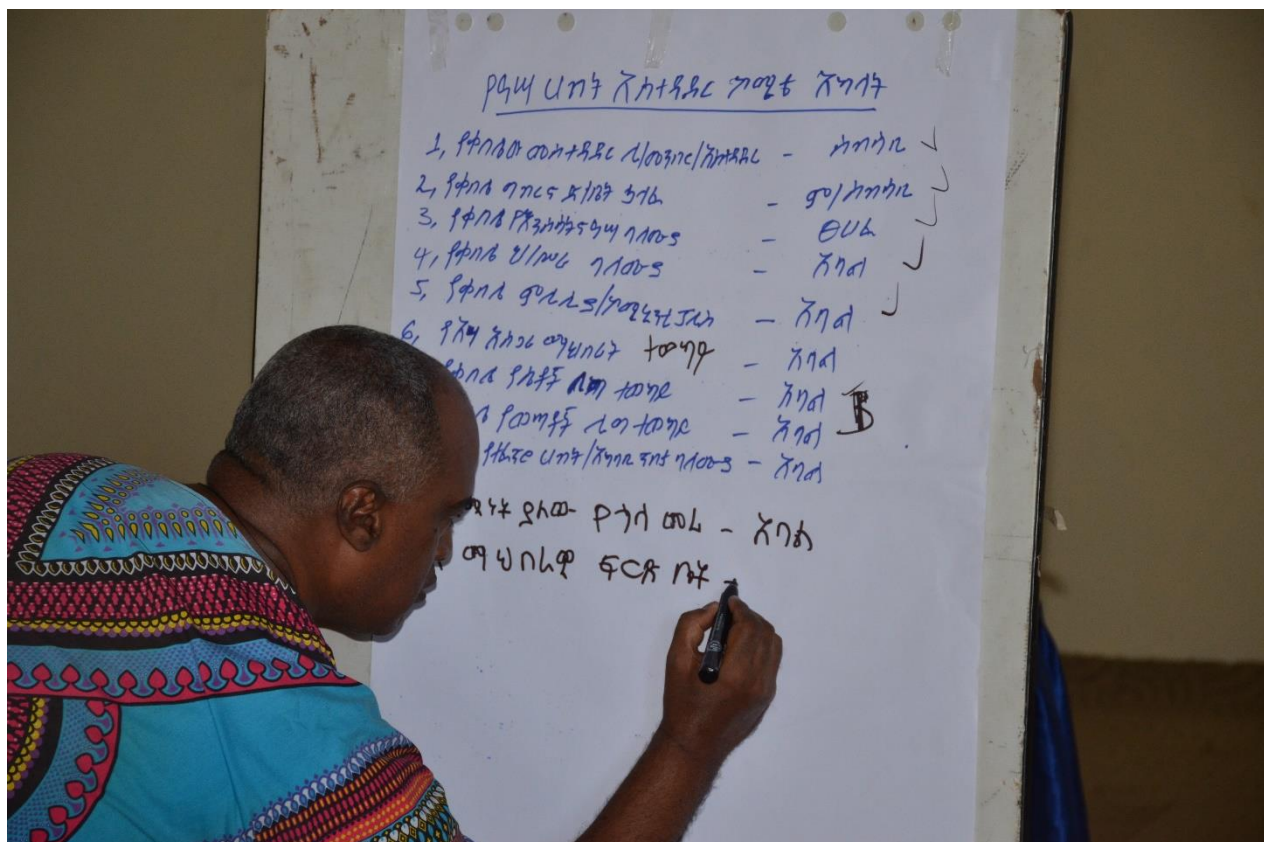 የዓሣ ሀብት አስተዳደር ኮሚቴ አባላት
1, የቀበሌው መስተዳድር ሊ/መንበር/አስተዳደር - ሰብሳቢ
2, የቀበሌ ግብርና ጽ/ቤት ኃላፊ - ም/ሰብሳቢ
3, የቀበሌ የእንስሳትና ዓሣ ባለሙያ - ፀሀፊ
4, የቀበሌ ህ/ሥራ ባለሙያ - አባል
5, የቀበሌ ምሊሻ/ኮሚኒቲ ፖሊስ - አባል
6, የአሣ አስጋሪ ማህበራት ተወካይ - አባል
የቀበሌ የሴቶች ሊግ ተወካይ - አባል
የወጣቶች ሊግ ተወካይ - አባል
የተፈጥሮ ሀብት/አካባቢ ጥበቃ ባለሙያ - አባል
ያለው የጎሳ መሪ - አባል
ማህበራዊ ፍርድ ቤት -